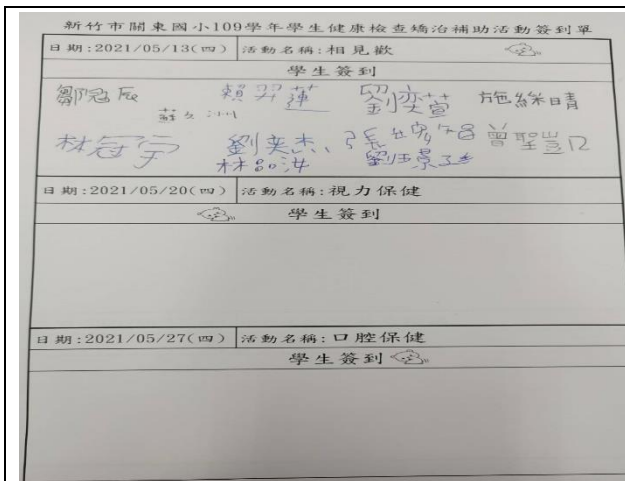 新竹市關東國小109學年學生健康檢查矯治補助活動簽到單
日期:2021/05/13(四) 活動名稱:相見歡
學生簽到
鄒冠辰 賴羿蓮 劉奕萱 施絲晴
林冠宇 劉奕杰 曾聖
林品洪
日期:2021/05/20(四) 活動名稱:視力保健
學生簽到
日期:2021/05/27(四) 活動名稱:口腔保健
學生簽到